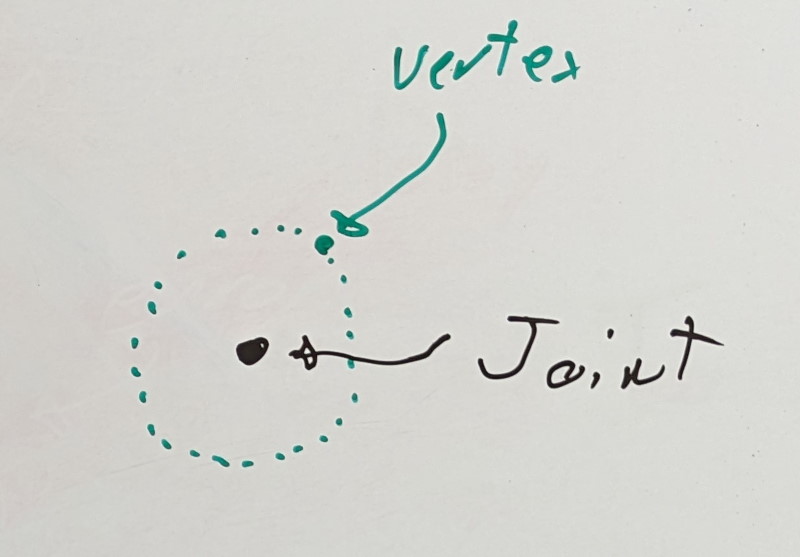 vertex
Joint